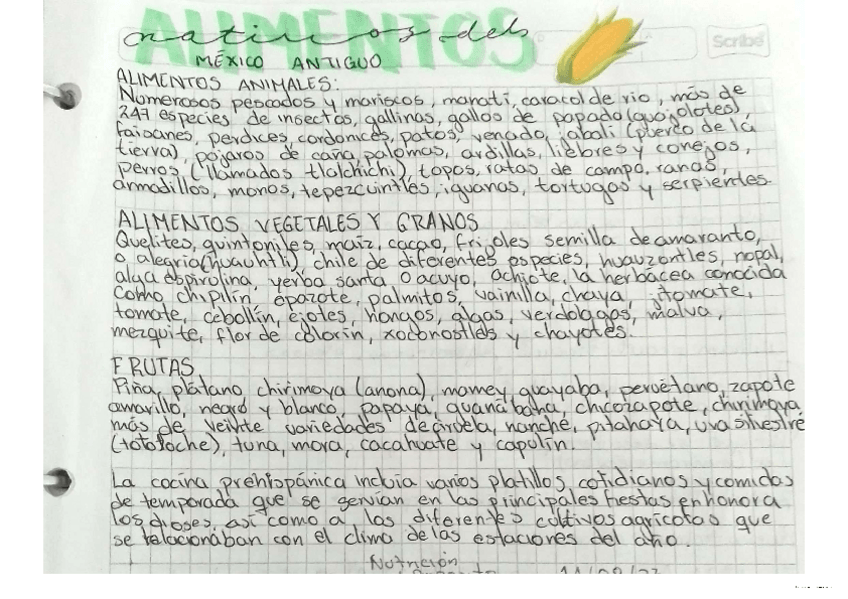 ALIMENTOS
nativos del
Scribe
MÉXICO ANTIGUO
ALIMENTOS ANIMALES:
Numerosos pescados y mariscos, manatí, caracol de rio, más de
247 especies de insectos, gallinas, gallos de papada (guajolotes),
faisanes, perdices, cordonices, patos, venado, jabali (puerco de la
tierra), pájaros de caña, palomas, ardillas, liebres y conejos,
perros (llamados tlalchichi), topos, ratas de campo, ranas,
armadillos, monos, tepezcuintles, iguanas, tortugas y serpientes.
ALIMENTOS VEGETALES Y GRANOS
Quelites, quintoniles, maíz, cacao, frijoles semilla de amaranto,
o alegria (huauhtli), chile de diferentes especies, huauzontles, nopal,
alga espirulina, yerba santa o acuyo, achiote, la herbácea conocida
como chipilín, epazote, palmitos, vainilla, chaya, jitomate,
tomate, cebollín, ejotes, hongos, algas, verdolagas, malva,
mezquite, flor de colorín, xoconostles y chayotes.
FRUTAS
Piña, plátano, chirimoya (anona), mamey, guayaba, peruétano, zapote
amarillo, negro y blanco, papaya, guanábana, chicozapote, chirimoya,
más de veinte variedades de ciruela, nanche, pitahaya, uva silvestre
(totoloche), tuna, mora, cacahuate y capulín.
La cocina prehispánica incluía varios platillos cotidianos y comidas
de temporada que se servían en las principales fiestas en honor a
los dioses, así como a los diferentes cultivos agrícolas que
se relacionaban con el clima de las estaciones del año.
Nutrición